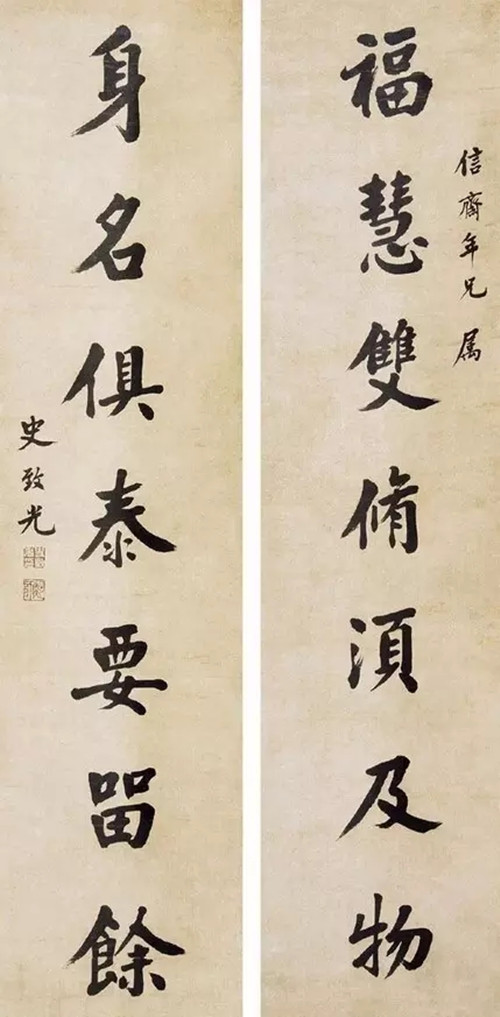 信齋年兄属
福慧雙脩須及物
身名俱泰要畱餘
史致光